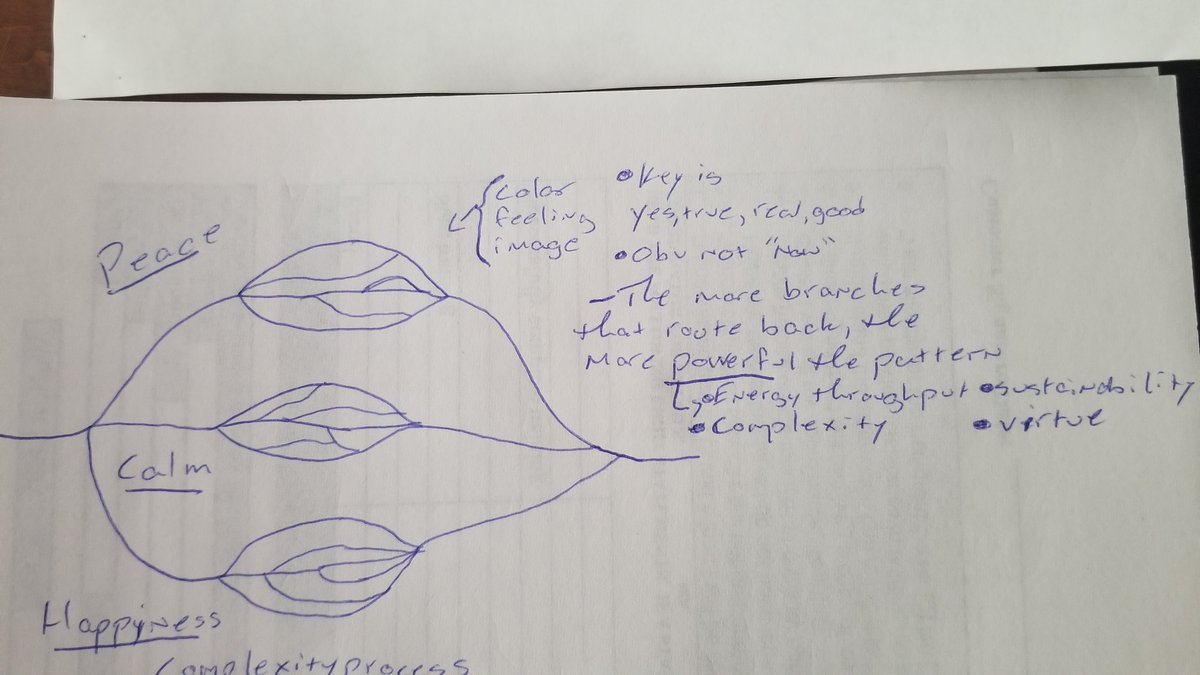 Peace
Calm
Happyness
Complexity process
{ color
feeling
image
• Key is
yes, true, real, good
• Obv not "Now"
- The more branches
that route back, the
more powerful the pattern
• Energy throughput • sustainability
• Complexity • virtue